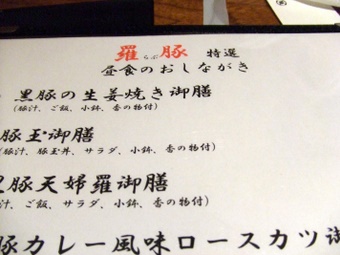 羅豚 特選
らぶ
昼食のおしながき
黒豚の生姜焼き御膳
(豚汁、ご飯、サラダ、小鉢、香の物付)
豚玉御膳
豚汁、豚玉丼、サラダ、小鉢、香の物付)
豚天婦羅御膳
汁、ご飯、サラダ、小鉢、香の物付)
豚カレー風味ロースカツ御